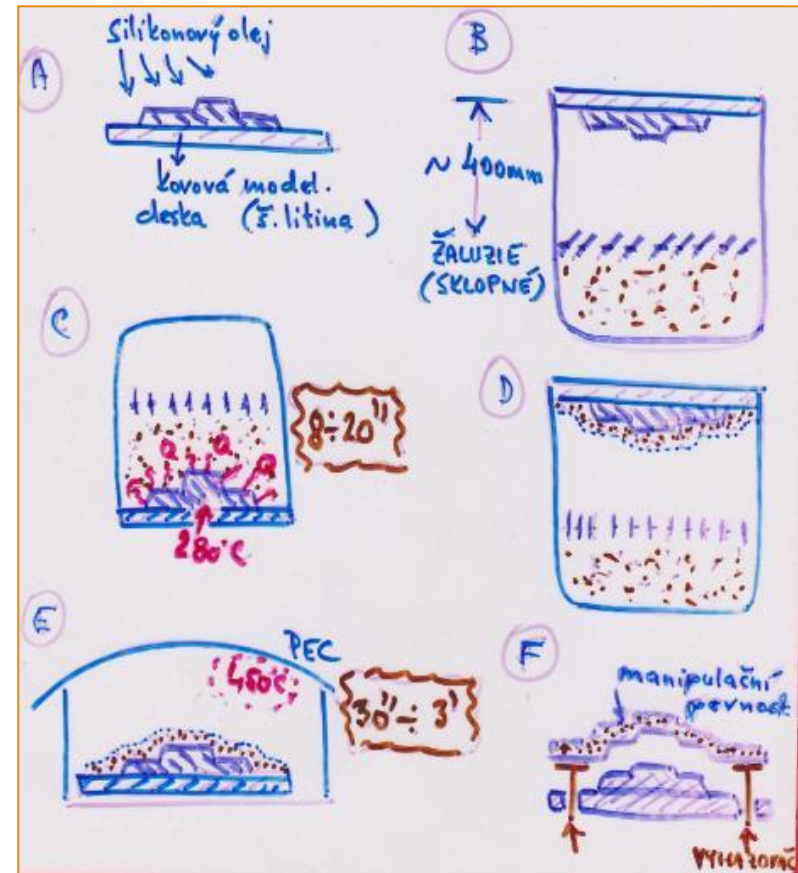 A
Silikonový olej
kovová model.
deska (š. litina)
B
~ 400mm
ŽALUZIE
(SKLOPNÉ)
C
8÷20"
Q Q Q
280°C
D
E
PEC
450°C
30"÷ 3'
F
manipulační
pevnost
VYHAZOVAČ